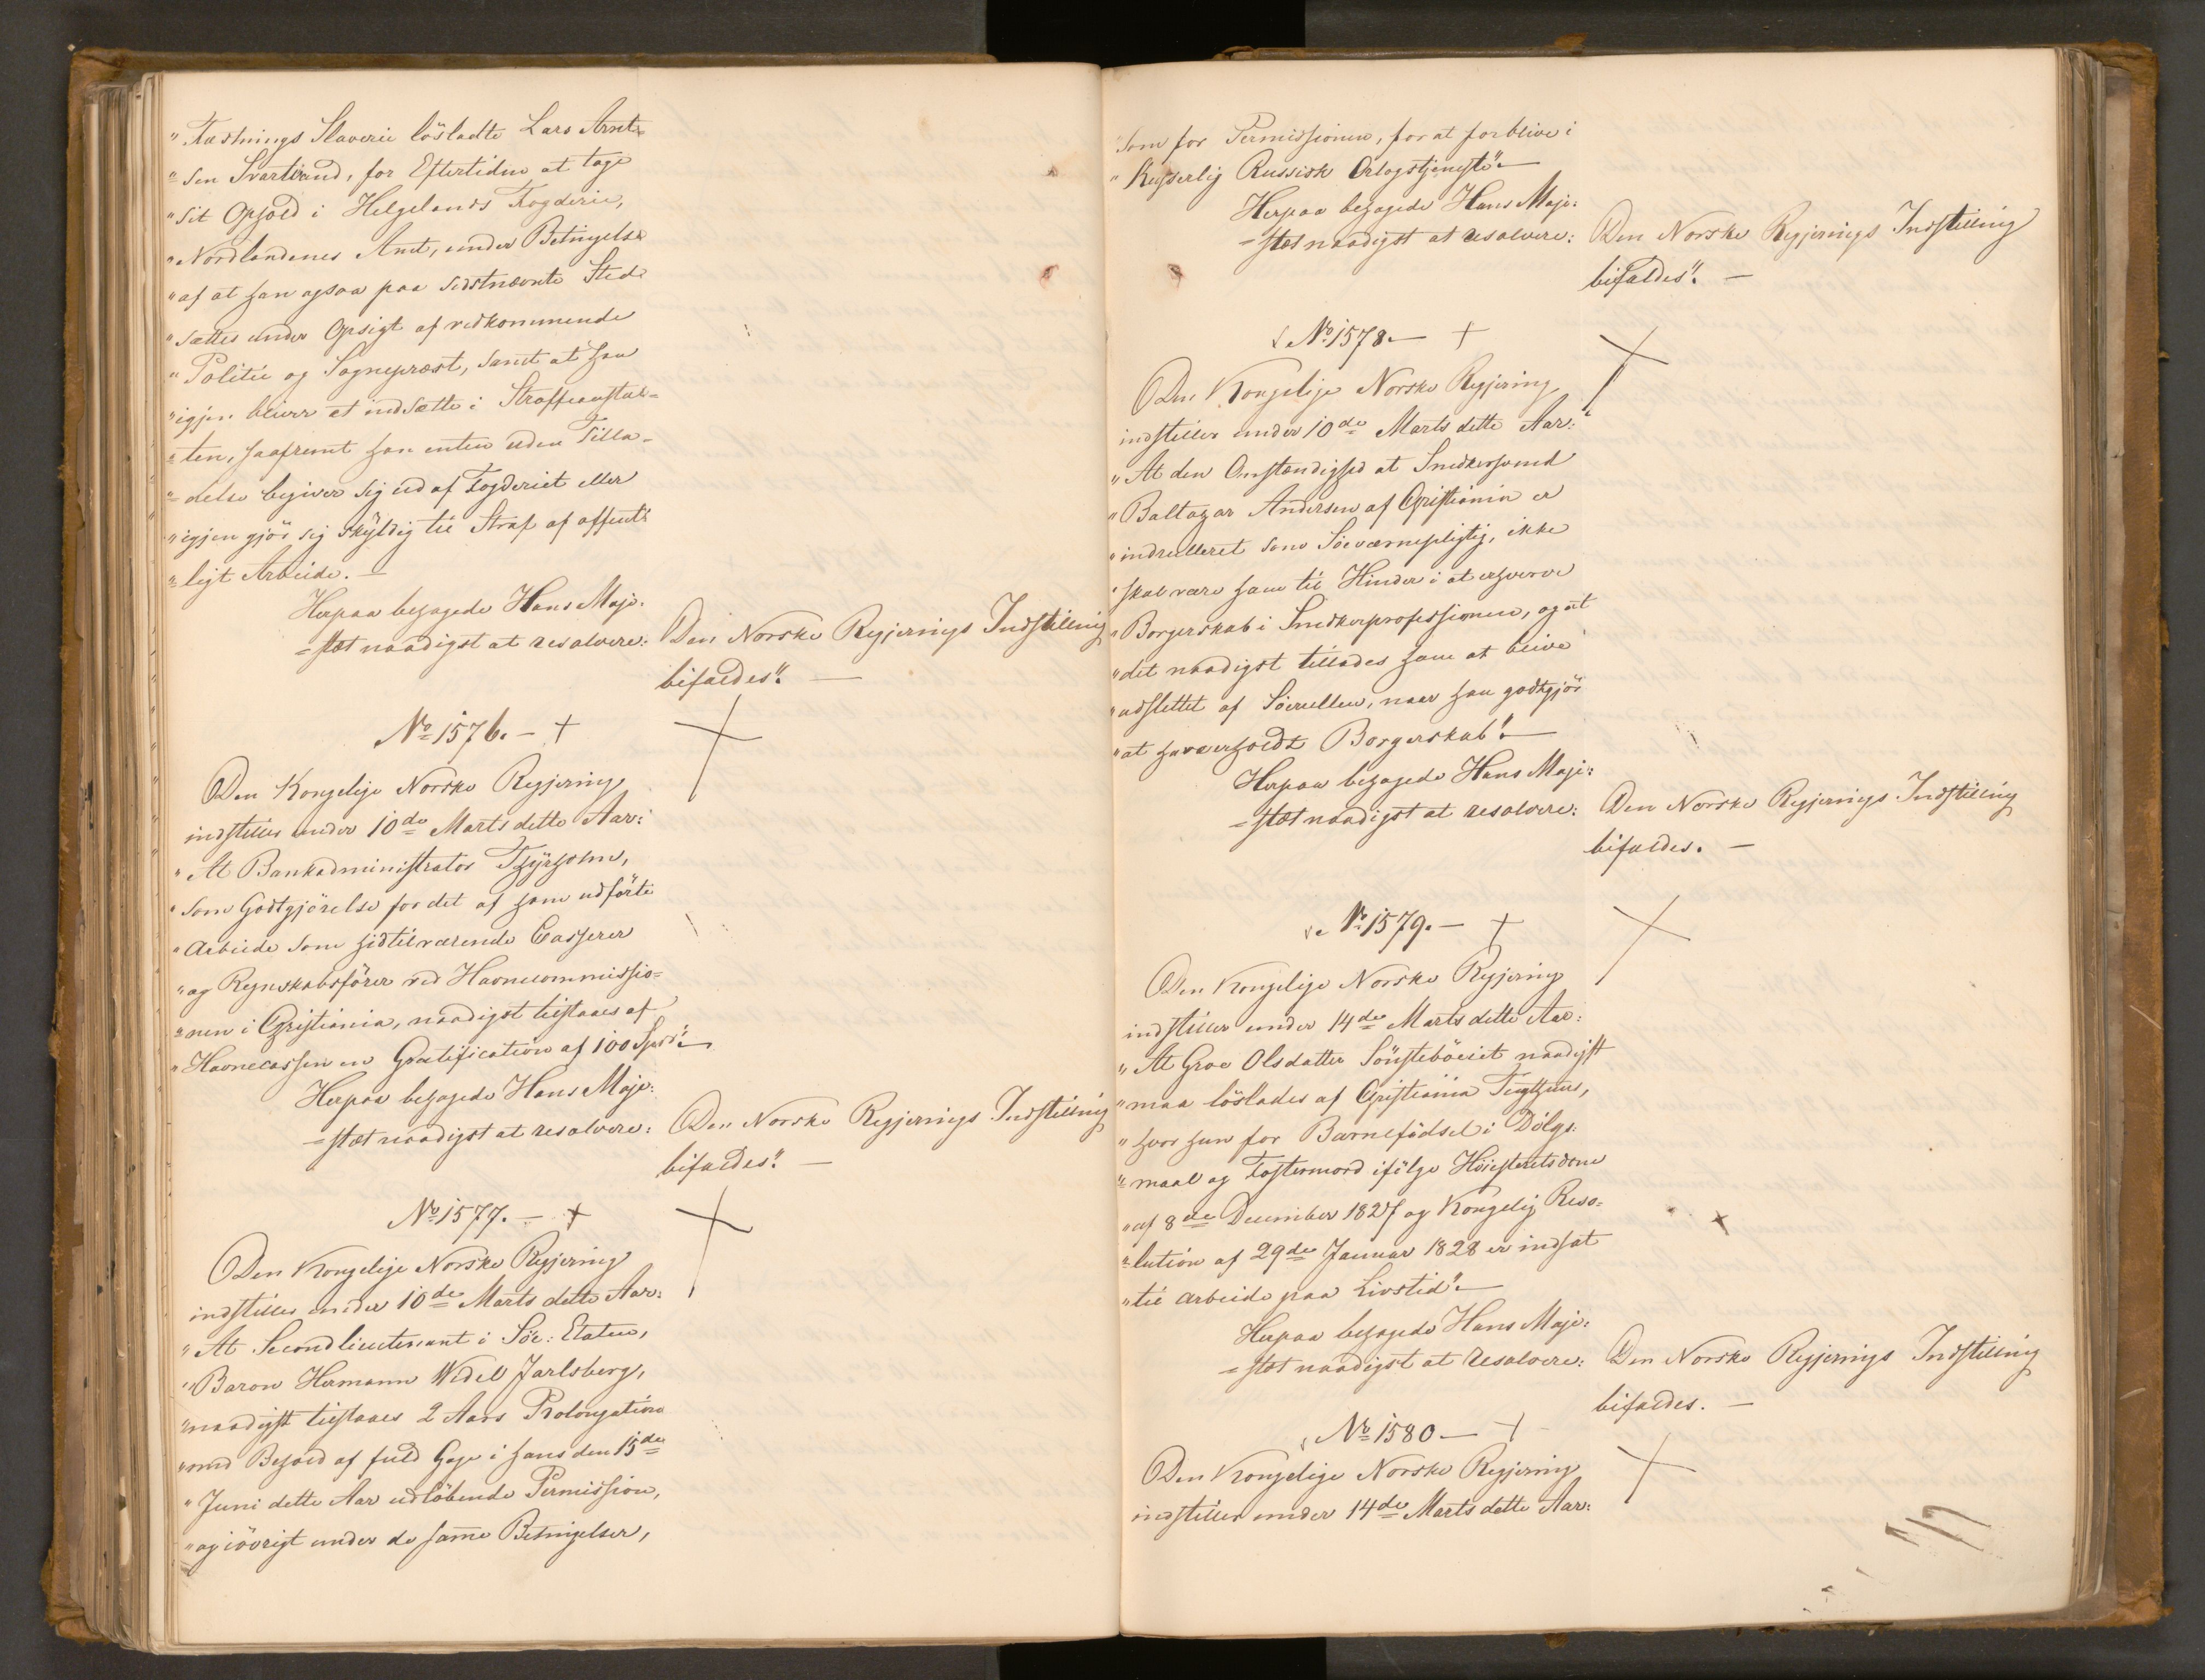 "Fæstnings Slaverie löslatte Lars Arnt-
"sen Svartvand, for Eftertiden at tage
"sit Ophold i Helgelands Fogderie,
"Nordlandenes Amt, under Betingelse
"af at han ogsaa paa sidstnævnte Sted
"sættes under Opsigt af vedkommende
"Politie og Sogneprest, samt at han
"igjen bliver at indsætte i Straffeanstal-
"ten, saafremt han enten uden Tilla-
"delse begiver sig ud af Fogderiet eller
"igjen gjör sig skyldig til Straf af offent-
"ligt Arbeide. —
Herpaa behagede Hans Maje-
=stæt naadigst at resolvere: Den Norske Regjerings Indstilling
bifaldes". —
No 1576. — +
Den Kongelige Norske Regjering
indstiller under 10de Marts dette Aar:
"At Bankadministrator Thyrholm,
"som Godtgjörelse for det af ham udförte
"Arbeide som hidtilværende Casserer
"og Regnskabsförer ved Havnecommissio-
"nen i Christiania, naadigst tilstaaes af
"Havnecassen en Gratification af 100 Spd". —
Herpaa behagede Hans Maje-
=stæt naadigst at resolvere: Den Norske Regjerings Indstilling
bifaldes". —
No 1577. — +
Den Kongelige Norske Regjering
indstiller under 10de Marts dette Aar:
"At Secondlieutenant i Söe-Etaten,
"Baron Hermann Wedel Jarlsberg,
"naadigst tilstaaes 2 Aars Prolongation
"med Behold af fuld Gage i hans den 15de
"Juni dette Aar udlöbende Permission,
"og iövrigt under de samme Betingelser,
"som for Permissionen, for at forblive i
"Keyserlig Russisk Orlogstjeneste". —
Herpaa behagede Hans Maje-
=stæt naadigst at resolvere: Den Norske Regjerings Indstilling
bifaldes". —
No 1578. — +
Den Kongelige Norske Regjering
indstiller under 10de Marts dette Aar:
"At den Omstændighed at Snedkersvend
"Baltazar Andersen af Christiania er
"indrulleret som Söeværnepligtig, ikke
"skal være ham til Hinder i at erhverve
"Borgerskab i Snedkerprofessionen, og at
"det naadigst tillades ham at blive
"udslettet af Söerullen, naar han godtgjör
"at have erholdt Borgerskab". —
Herpaa behagede Hans Maje-
=stæt naadigst at resolvere: Den Norske Regjerings Indstilling
bifaldes. —
No 1579. — +
Den Kongelige Norske Regjering
indstiller under 14de Marts dette Aar:
"At Groe Olsdatter naadigst
"maa löslades af Christiania Tugthuus,
"hvor hun for Barnefödsel i Dölgs-
"maal og Fostermord ifölge Höiesteretsdom
"af 8de December 1827 og Kongelig Reso-
"lution af 29de Januar 1828 er indsat
"til Arbeide paa Livstid". —
Herpaa behagede Hans Maje-
=stæt naadigst at resolvere: Den Norske Regjerings Indstilling
bifaldes. —
No 1580 — +
Den Kongelige Norske Regjering
indstiller under 14de Marts dette Aar: